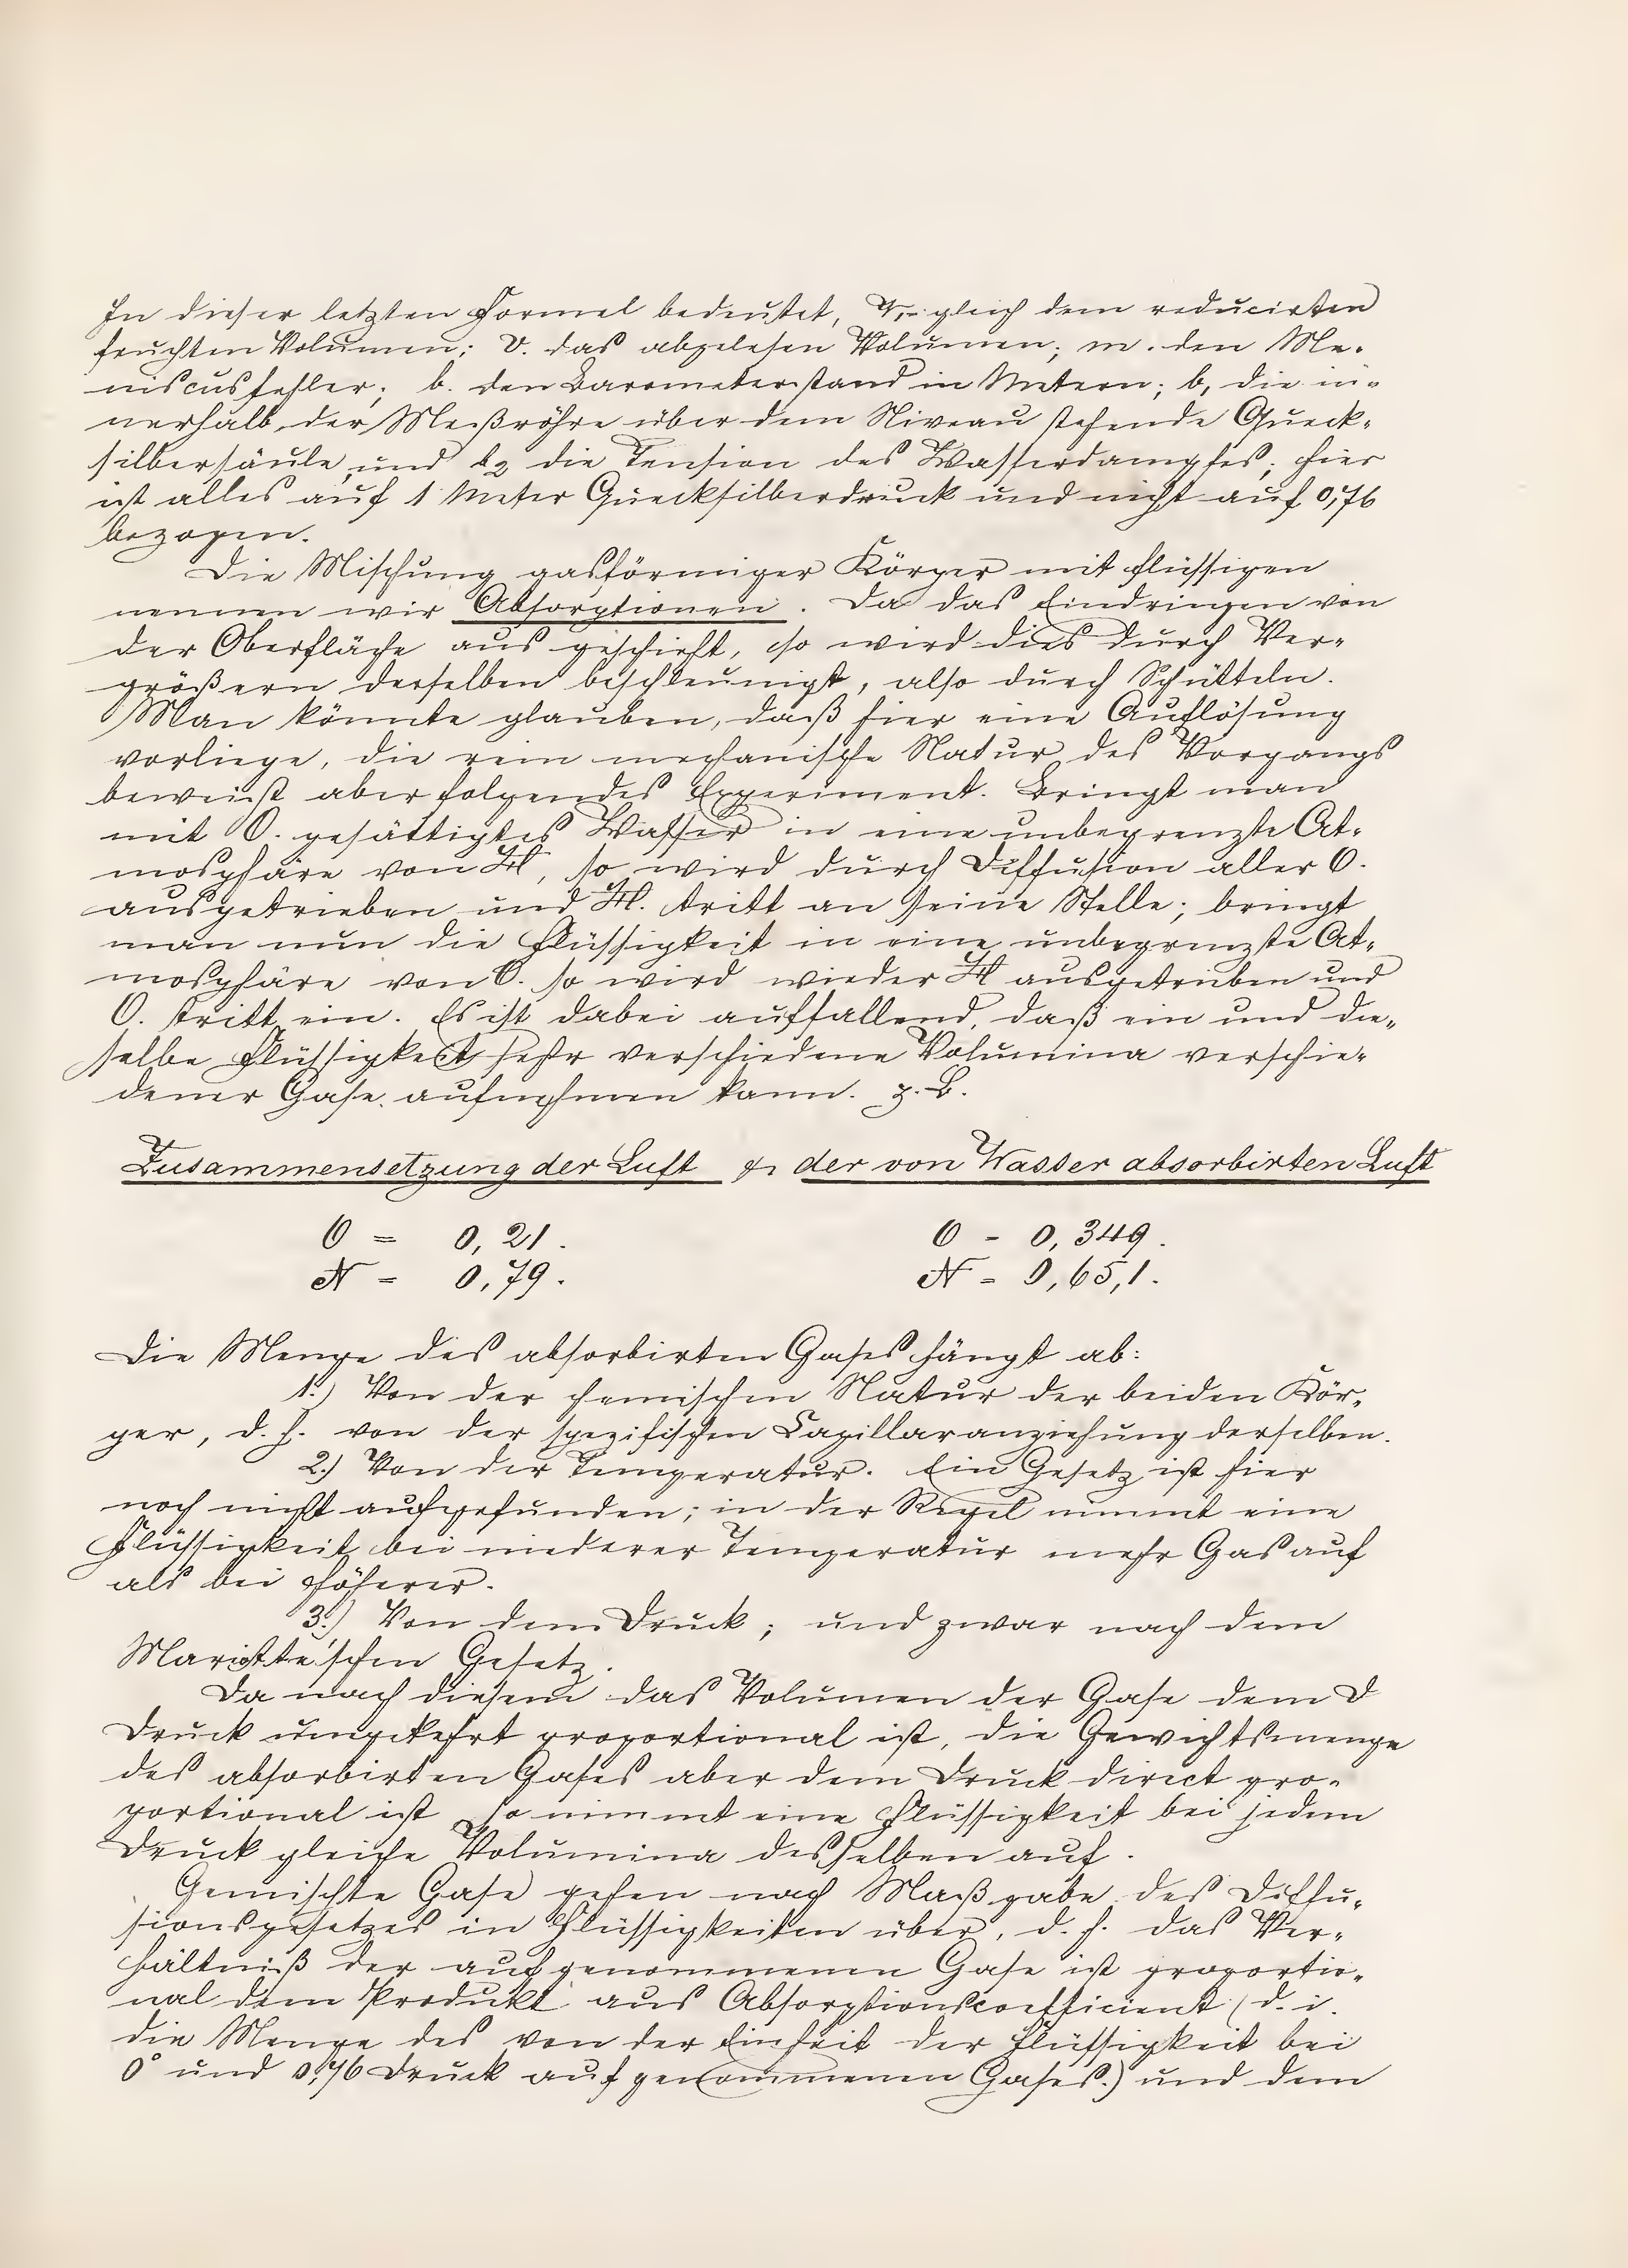 In dieser letzten Formel bedeutet, V₁ = gleich dem reducirten
feuchten Volumen; V. das abgelesen Volumen; m. den Me-
niscusfehler; b. den Barometerstand in Metern; b₁ die in-
nerhalb der Meßröhre über dem Niveau stehende Queck-
silbersäule und b₂ die Tension des Wasserdampfes; hier
ist alles auf 1 Meter Quecksilberdruck und nicht auf 0,76
bezogen.
Die Mischung gasförmiger Körper mit flüssigen
nennen wir Absorptionen. Da das Eindringen von
der Oberfläche aus geschieht, so wird dies durch Ver-
größern derselben beschleunigt, also durch Schütteln.
Man könnte glauben, daß hier eine Auflösung
vorliege, die rein mechanische Natur des Vorgangs
beweist aber folgendes Experiment. Bringt man
mit O. gesättigtes Wasser in eine unbegrenzte At-
mosphäre von H, so wird durch Diffusion aller O.
ausgetrieben und H. tritt an seine Stelle; bringt
man nun die Flüssigkeit in eine unbegrenzte At-
mosphäre von O. so wird wieder H ausgetrieben und
O. tritt ein. Es ist dabei auffallend, daß ein und die-
selbe Flüssigkeit sehr verschiedene Volumina verschie-
dener Gase aufnehmen kann. z. B.
Zusammensetzung der Luft & der von Wasser absorbirten Luft
O = 0,21. O - 0,349.
N - 0,79. N - 0,65,1.
Die Menge des absorbirten Gases hängt ab:
1.) Von der chemischen Natur der beiden Kör-
per, d. h. von der spezifischen Capillaranziehung derselben.
2.) Von der Temperatur. Ein Gesetz ist hier
noch nicht aufgefunden; in der Regel nimmt eine
Flüssigkeit bei niederer Temperatur mehr Gas auf
als bei höherer.
3.) Von dem Druck; und zwar nach dem
Mariotte'schen Gesetz.
Da nach diesem das Volumen der Gase dem D
Druck umgekehrt proportional ist, die Gewichtsmenge
des absorbirten Gases aber dem Druck direct pro-
portional ist, so nimmt eine Flüssigkeit bei jedem
Druck gleiche Volumina desselben auf.
Gemischte Gase gehen nach Maßgabe des Diffu-
sionsgesetzes in Flüssigkeiten über, d. h. das Ver-
hältniß der aufgenommenen Gase ist proportio-
nal dem Produkt aus Absorptionscoefficient (d. i.
die Menge des von der Einheit der Flüssigkeit bei
0° und 0,76 Druck aufgenommenen Gases.) und dem